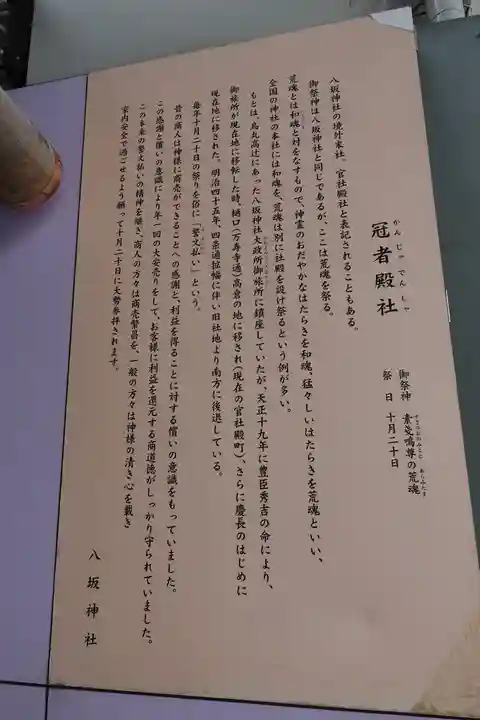 冠者殿社
かんじゃでんしゃ
御祭神 素戔嗚尊の荒魂
すさのをのみこと あらみたま
祭日 十月二十日
八坂神社の境外末社。官社殿社と表記されることもある。
御祭神は八坂神社と同じであるが、ここは荒魂を祭る。
荒魂とは和魂と対をなすもので、神霊のおだやかなはたらきを和魂、猛々しいはたらきを荒魂といい、
全国の神社の本社には和魂を、荒魂は別に社殿を設け祭るという例が多い。
もとは、烏丸高辻にあった八坂神社大政所御旅所に鎮座していたが、天正十九年に豊臣秀吉の命により、
御旅所が現在地に移転した時、樋口(万寿寺通)高倉の地に移され(現在の官社殿町)、さらに慶長のはじめに
現在地に移された。明治四十五年、四条通拡幅に伴い旧社地より南方に後退している。
毎年十月二十日の祭りを俗に「誓文払い」という。
昔の商人は神様に商売ができることへの感謝と、利益を得ることに対する償いの意識をもっていました。
この感謝と償いの意識により年一回の大安売りをして、お客様に利益を還元する商道徳がしっかり守られていました。
この本来の誓文払いの精神を継ぎ、商人の方々は商売繁昌を、一般の方々は神様の清き心を戴き
家内安全で過ごせるよう願って十月二十日に大勢参拝されます。
八坂神社